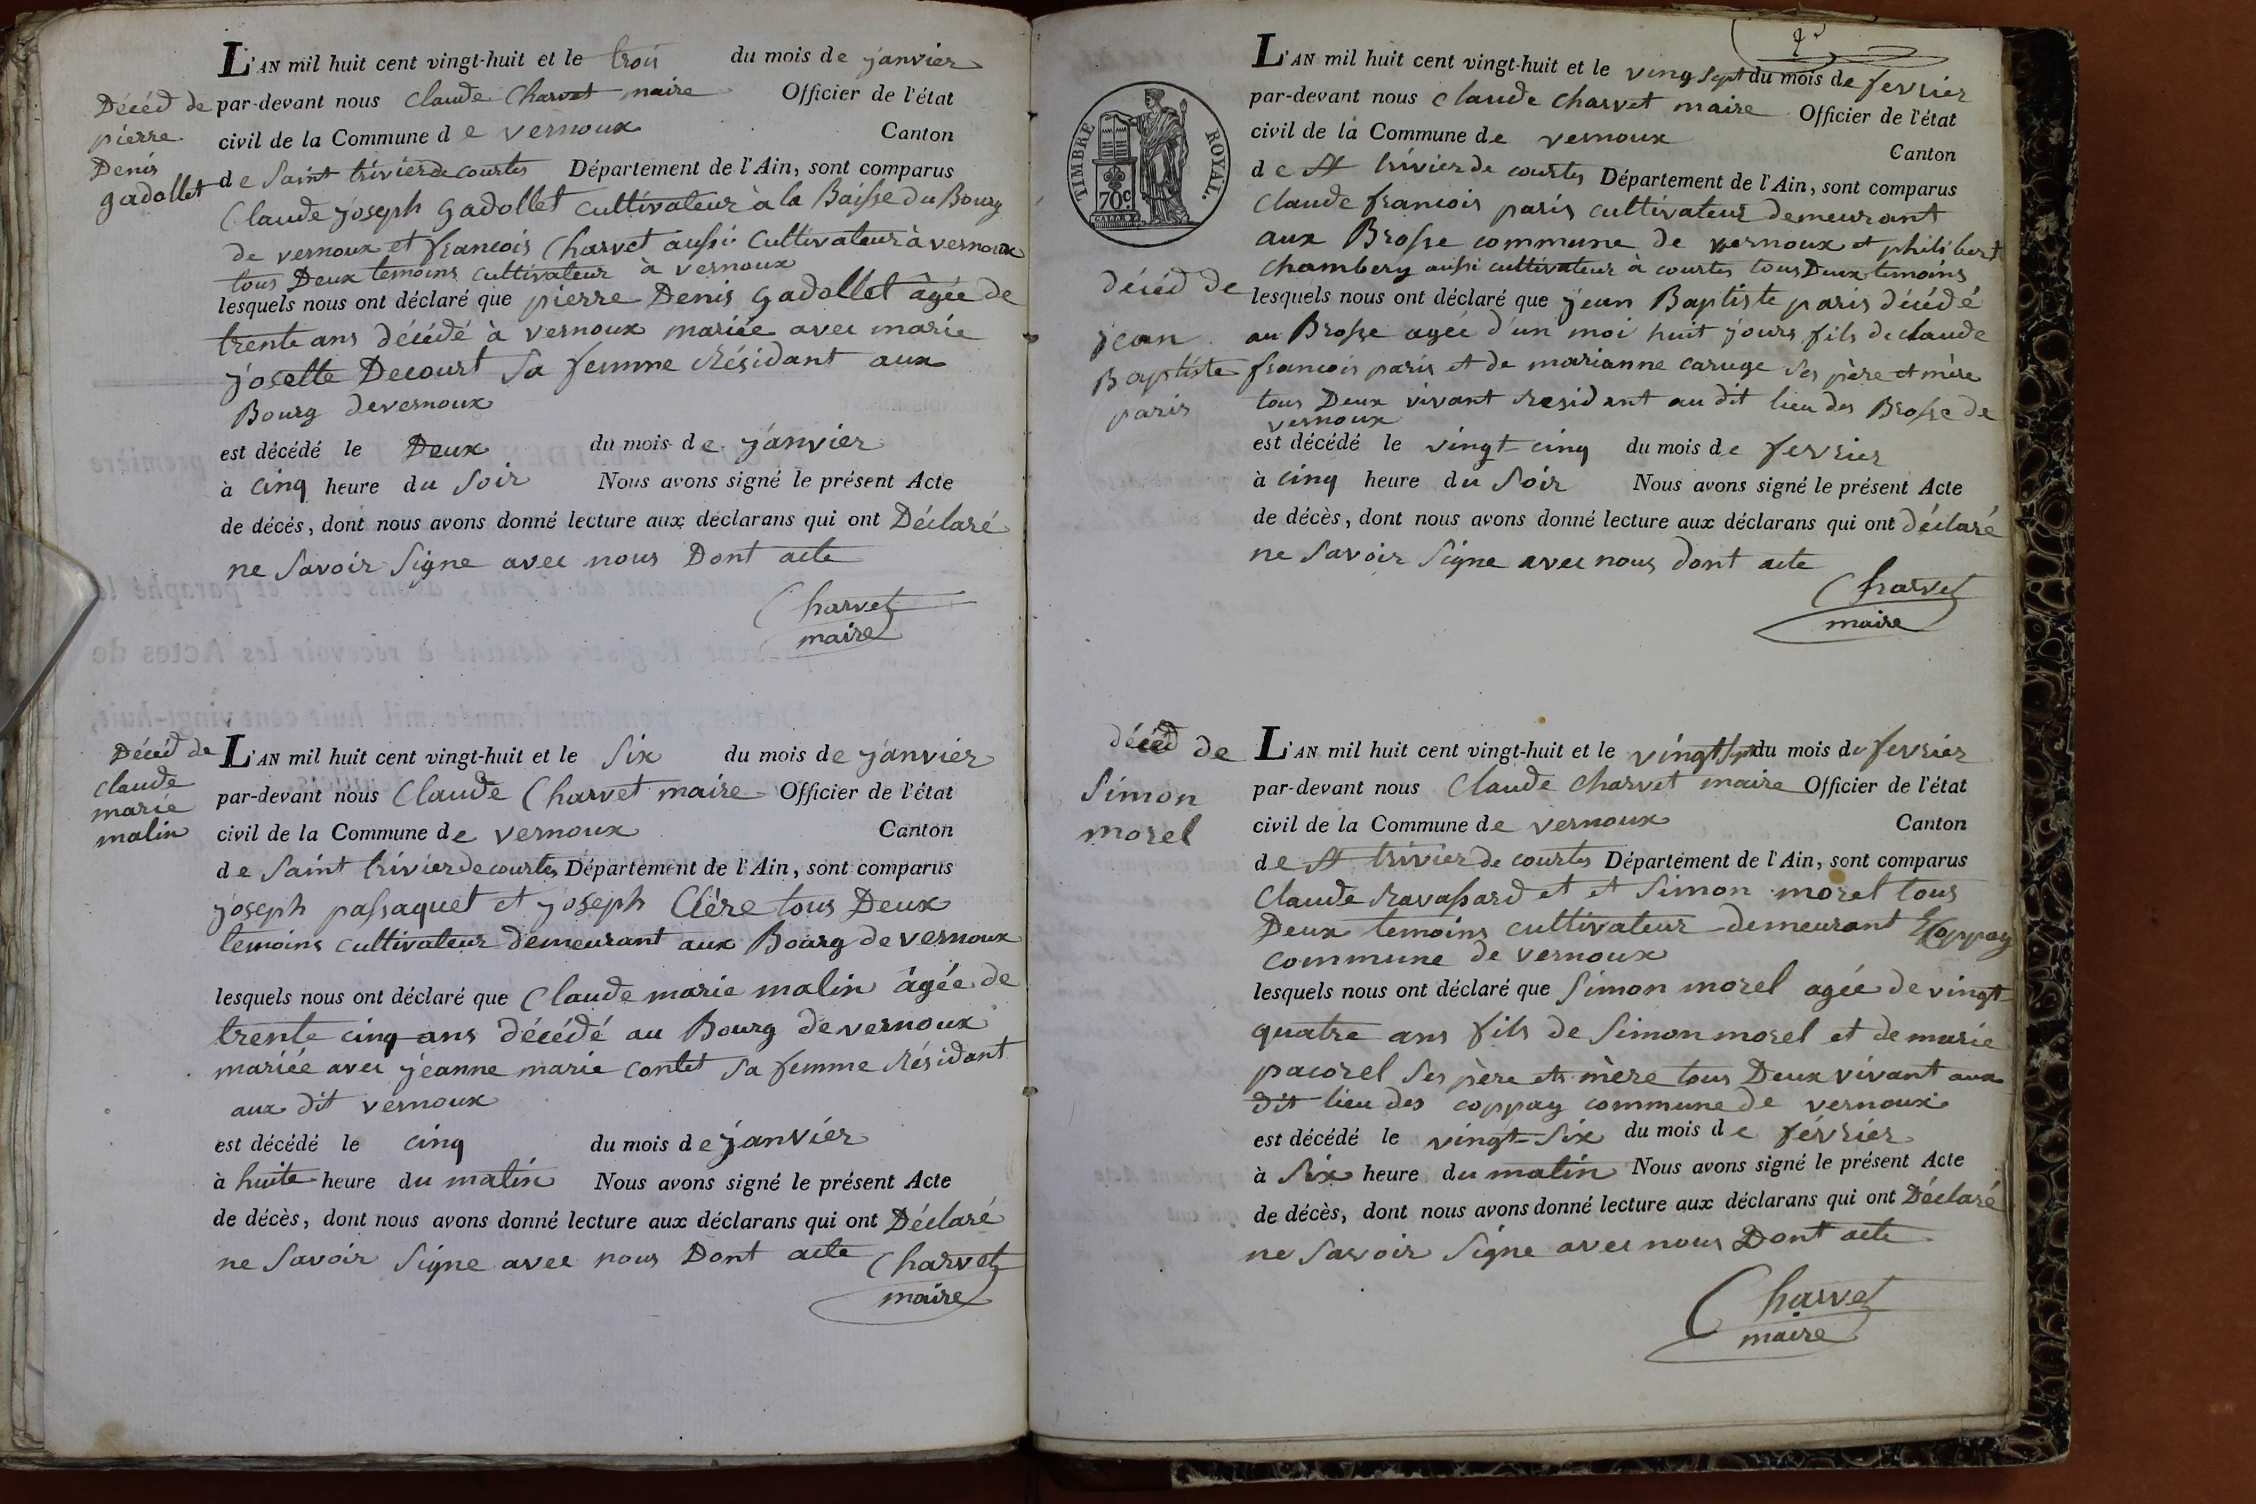 L'AN mil huit cent vingt-huit et le trois du mois de janvier
Décéd de
pierre
Denis
gadollet
par-devant nous Claude Charvet maire Officier de l'état
civil de la Commune de vernoux Canton
de Saint trivier de courtes Département de l'Ain, sont comparus
Claude joseph gadollet cultivateur à la Baisse du Bourg
de vernoux et francois Charvet aussi Cultivateur à vernoux
tous Deux temoins cultivateur à vernoux
lesquels nous ont déclaré que pierre Denis gadollet âgée de
trente ans décédé à vernoux mariée avec marie
josette Decourt Sa femme résidant aux
Bourg de vernoux
est décédé le Deux du mois de janvier
à cinq heure du Soir Nous avons signé le présent Acte
de décès, dont nous avons donné lecture aux déclarans qui ont Déclaré
ne Savoir Signe avec nous Dont acte
Charvet
maire
Décéd de
claude
marie
malin
L'AN mil huit cent vingt-huit et le Six du mois de janvier
par-devant nous Claude Charvet maire Officier de l'état
civil de la Commune de vernoux Canton
de Saint trivier de courtes Département de l'Ain, sont comparus
joseph passaquet et joseph Clére tous Deux
temoins cultivateur demeurant aux Bourg de vernoux
lesquels nous ont déclaré que Claude marie malin âgée de
trente cinq ans décédé au Bourg de vernoux
mariée avec jéanne marie contet Sa femme résidant
aux dit vernoux
est décédé le cinq du mois de janvier
à huite heure du matin Nous avons signé le présent Acte
de décès, dont nous avons donné lecture aux déclarans qui ont Déclaré
ne Savoir Signe avec nous Dont acte
Charvet
maire
2
TIMBRE ROYAL.
70c.
L'AN mil huit cent vingt-huit et le ving Sept du mois de fevrier
par-devant nous claude charvet maire Officier de l'état
civil de la Commune de vernoux Canton
de St trivier de courtes Département de l'Ain, sont comparus
claude francois paris cultivateur demeurant
aux Brosse commune de vernoux et philibert
chambery aussi cultivateur à courtes tous Deux temoins
décéd de
jean
Baptiste
paris
lesquels nous ont déclaré que jean Baptiste paris décédé
au Brosse agée d'un moi huit jours fils de claude
francois paris et de marianne caruge Ses père et mère
tous Deux vivant resident au dit lieu des Brosse de
vernoux
est décédé le vingt cinq du mois de fevrier
à cinq heure du Soir Nous avons signé le présent Acte
de décès, dont nous avons donné lecture aux déclarans qui ont déclaré
ne Savoir Signe avec nous dont acte
Charvet
maire
décéd de
Simon
morel
L'AN mil huit cent vingt-huit et le vingt Sept du mois de fevrier
par-devant nous Claude charvet maire Officier de l'état
civil de la Commune de vernoux Canton
de St trivier de courtes Département de l'Ain, sont comparus
Claude ravassard et et Simon morel tous
Deux temoins cultivateur demeurant Coppay
commune de vernoux
lesquels nous ont déclaré que Simon morel agée de vingt
quatre ans fils de Simon morel et de marie
pacorel Ses père et mère tous Deux vivant aux
dit lieu des coppay commune de vernoux
est décédé le vingt Six du mois de février
à Six heure du matin Nous avons signé le présent Acte
de décès, dont nous avons donné lecture aux déclarans qui ont Déclaré
ne Savoir Signe avec nous Dont acte
Charvet
maire